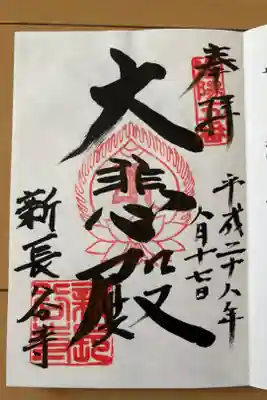 奉拝
平成二十八年
八月十七日
大悲殿
新長谷寺